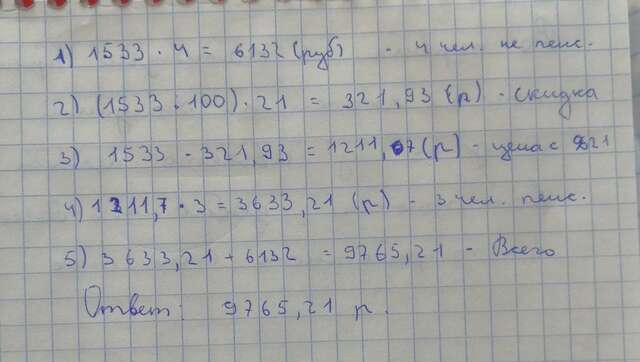 1) 1533 · 4 = 6132 (руб) - 4 чел. не пенс.
2) (1533 : 100) · 21 = 321,93 (р) - скидка
3) 1533 - 321,93 = 1211,07 (р) - цена с %21
4) 1211,7 · 3 = 3633,21 (р) - 3 чел. пенс.
5) 3633,21 + 6132 = 9765,21 - Всего
Ответ: 9765,21 р.